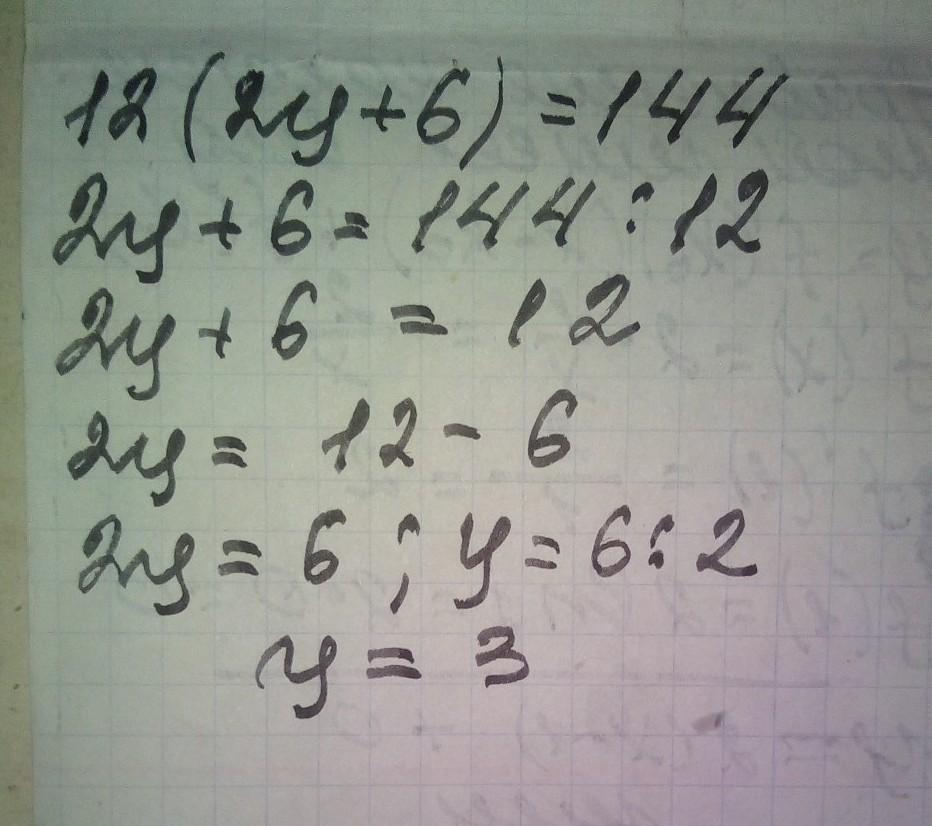 12(2y+6)=144
2y+6=144:12
2y+6 = 12
2y = 12 - 6
2y = 6 ; y = 6:2
y = 3